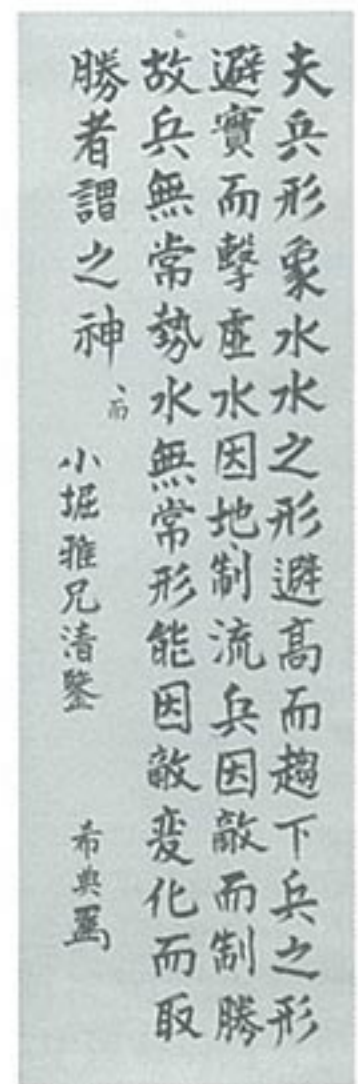 夫兵形象水水之形避高而趨下兵之形
避實而擊虛水因地制流兵因敵而制勝
故兵無常勢水無常形能因敵変化而取
勝者謂之神
、而
小堀雅兄清鑒
希典